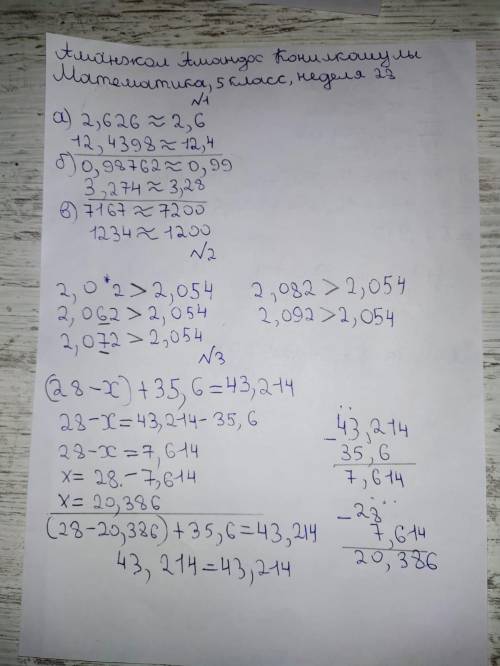 Аманжол Амандос Конилкошулы
Математика, 5 класс, неделя 23
№1
а) 2,626 ≈ 2,6
12,4398 ≈ 12,4
б) 0,98762 ≈ 0,99
3,274 ≈ 3,28
в) 7167 ≈ 7200
1234 ≈ 1200
№2
2,0*2 > 2,054
2,062 > 2,054
2,072 > 2,054
2,082 > 2,054
2,092 > 2,054
№3
(28-x)+35,6=43,214
28-x=43,214-35,6
28-x=7,614
x=28-7,614
x=20,386
(28-20,386)+35,6=43,214
43,214=43,214
-43,214
35,6
7,614
-28
7,614
20,386